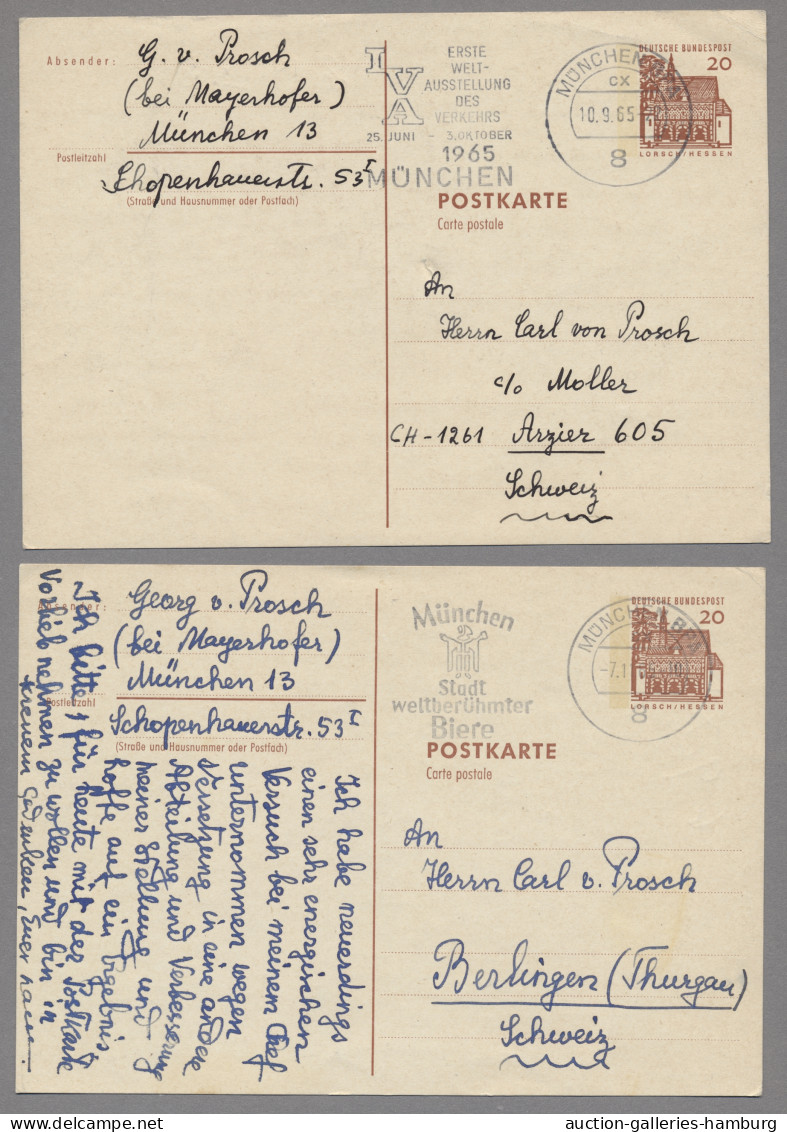 Absender:
G. v. Prosch
(bei Mayerhofer)
München 13
Postleitzahl
Schopenhauerstr. 53 I
(Straße und Hausnummer oder Postfach)
I
V
A
ERSTE
WELT-
AUSSTELLUNG
DES
VERKEHRS
25. JUNI - 3. OKTOBER
1965
MÜNCHEN
MÜNCHEN
CX
10.9.65
8
DEUTSCHE BUNDESPOST
20
LORSCH/HESSEN
POSTKARTE
Carte postale
An
Herrn Carl von Prosch
c/o Moller
CH-1261 Arzier 605
Schweiz
Absender:
Georg v. Prosch
(bei Mayerhofer)
München 13
Postleitzahl
Schopenhauerstr. 53
(Straße und Hausnummer oder Postfach)
München
Stadt
weltberühmter
Biere
8
DEUTSCHE BUNDESPOST
20
LORSCH/HESSEN
POSTKARTE
Carte postale
An
Herrn Carl v. Prosch
Berlingen (Thurgau)
Schweiz
Ich habe neuerdings
einen sehr energischen
Versuch bei meinem Chef
unternommen wegen
Versetzung in eine andere
Abteilung und Verbesserung
meiner Stellung und
hoffe auf ein Ergebnis.
Ich bitte, für heute mit der Postkarte
Vorlieb nehmen zu wollen und bin in
treuem Gedenken, Euer
auction-galleries-hamburg